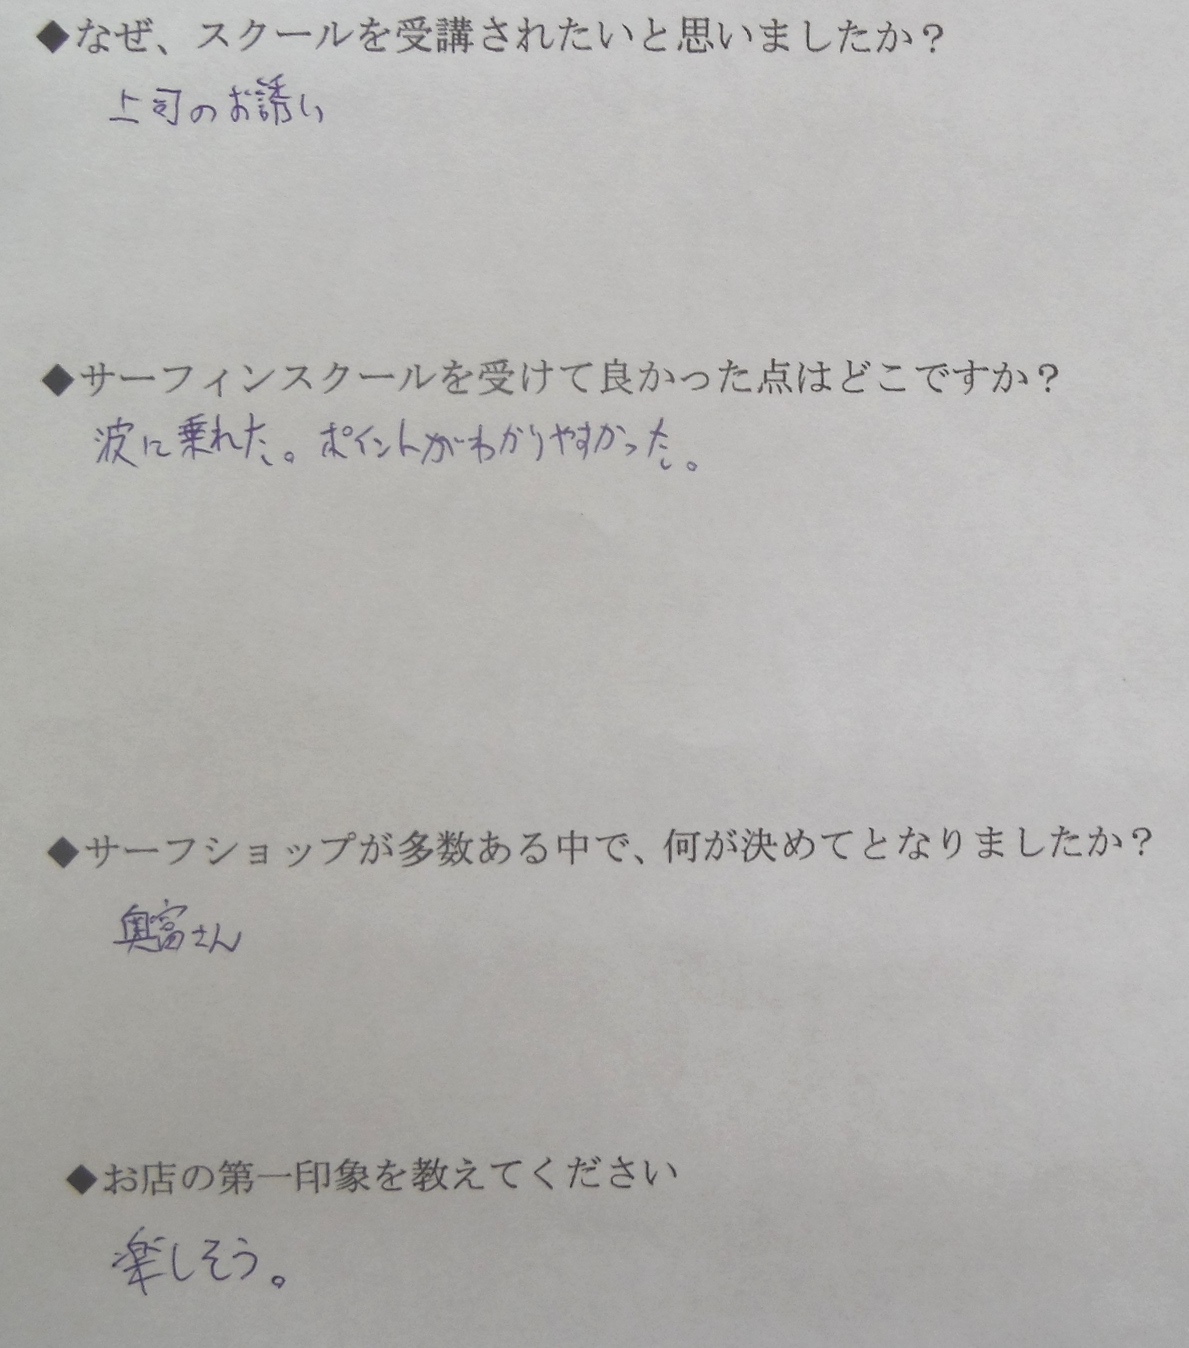 ◆なぜ、スクールを受講されたいと思いましたか？
上司のお誘い
◆サーフィンスクールを受けて良かった点はどこですか？
波に乗れた。ポイントがわかりやすかった。
◆サーフショップが多数ある中で、何が決めてとなりましたか？
奥富さん
◆お店の第一印象を教えてください
楽しそう。